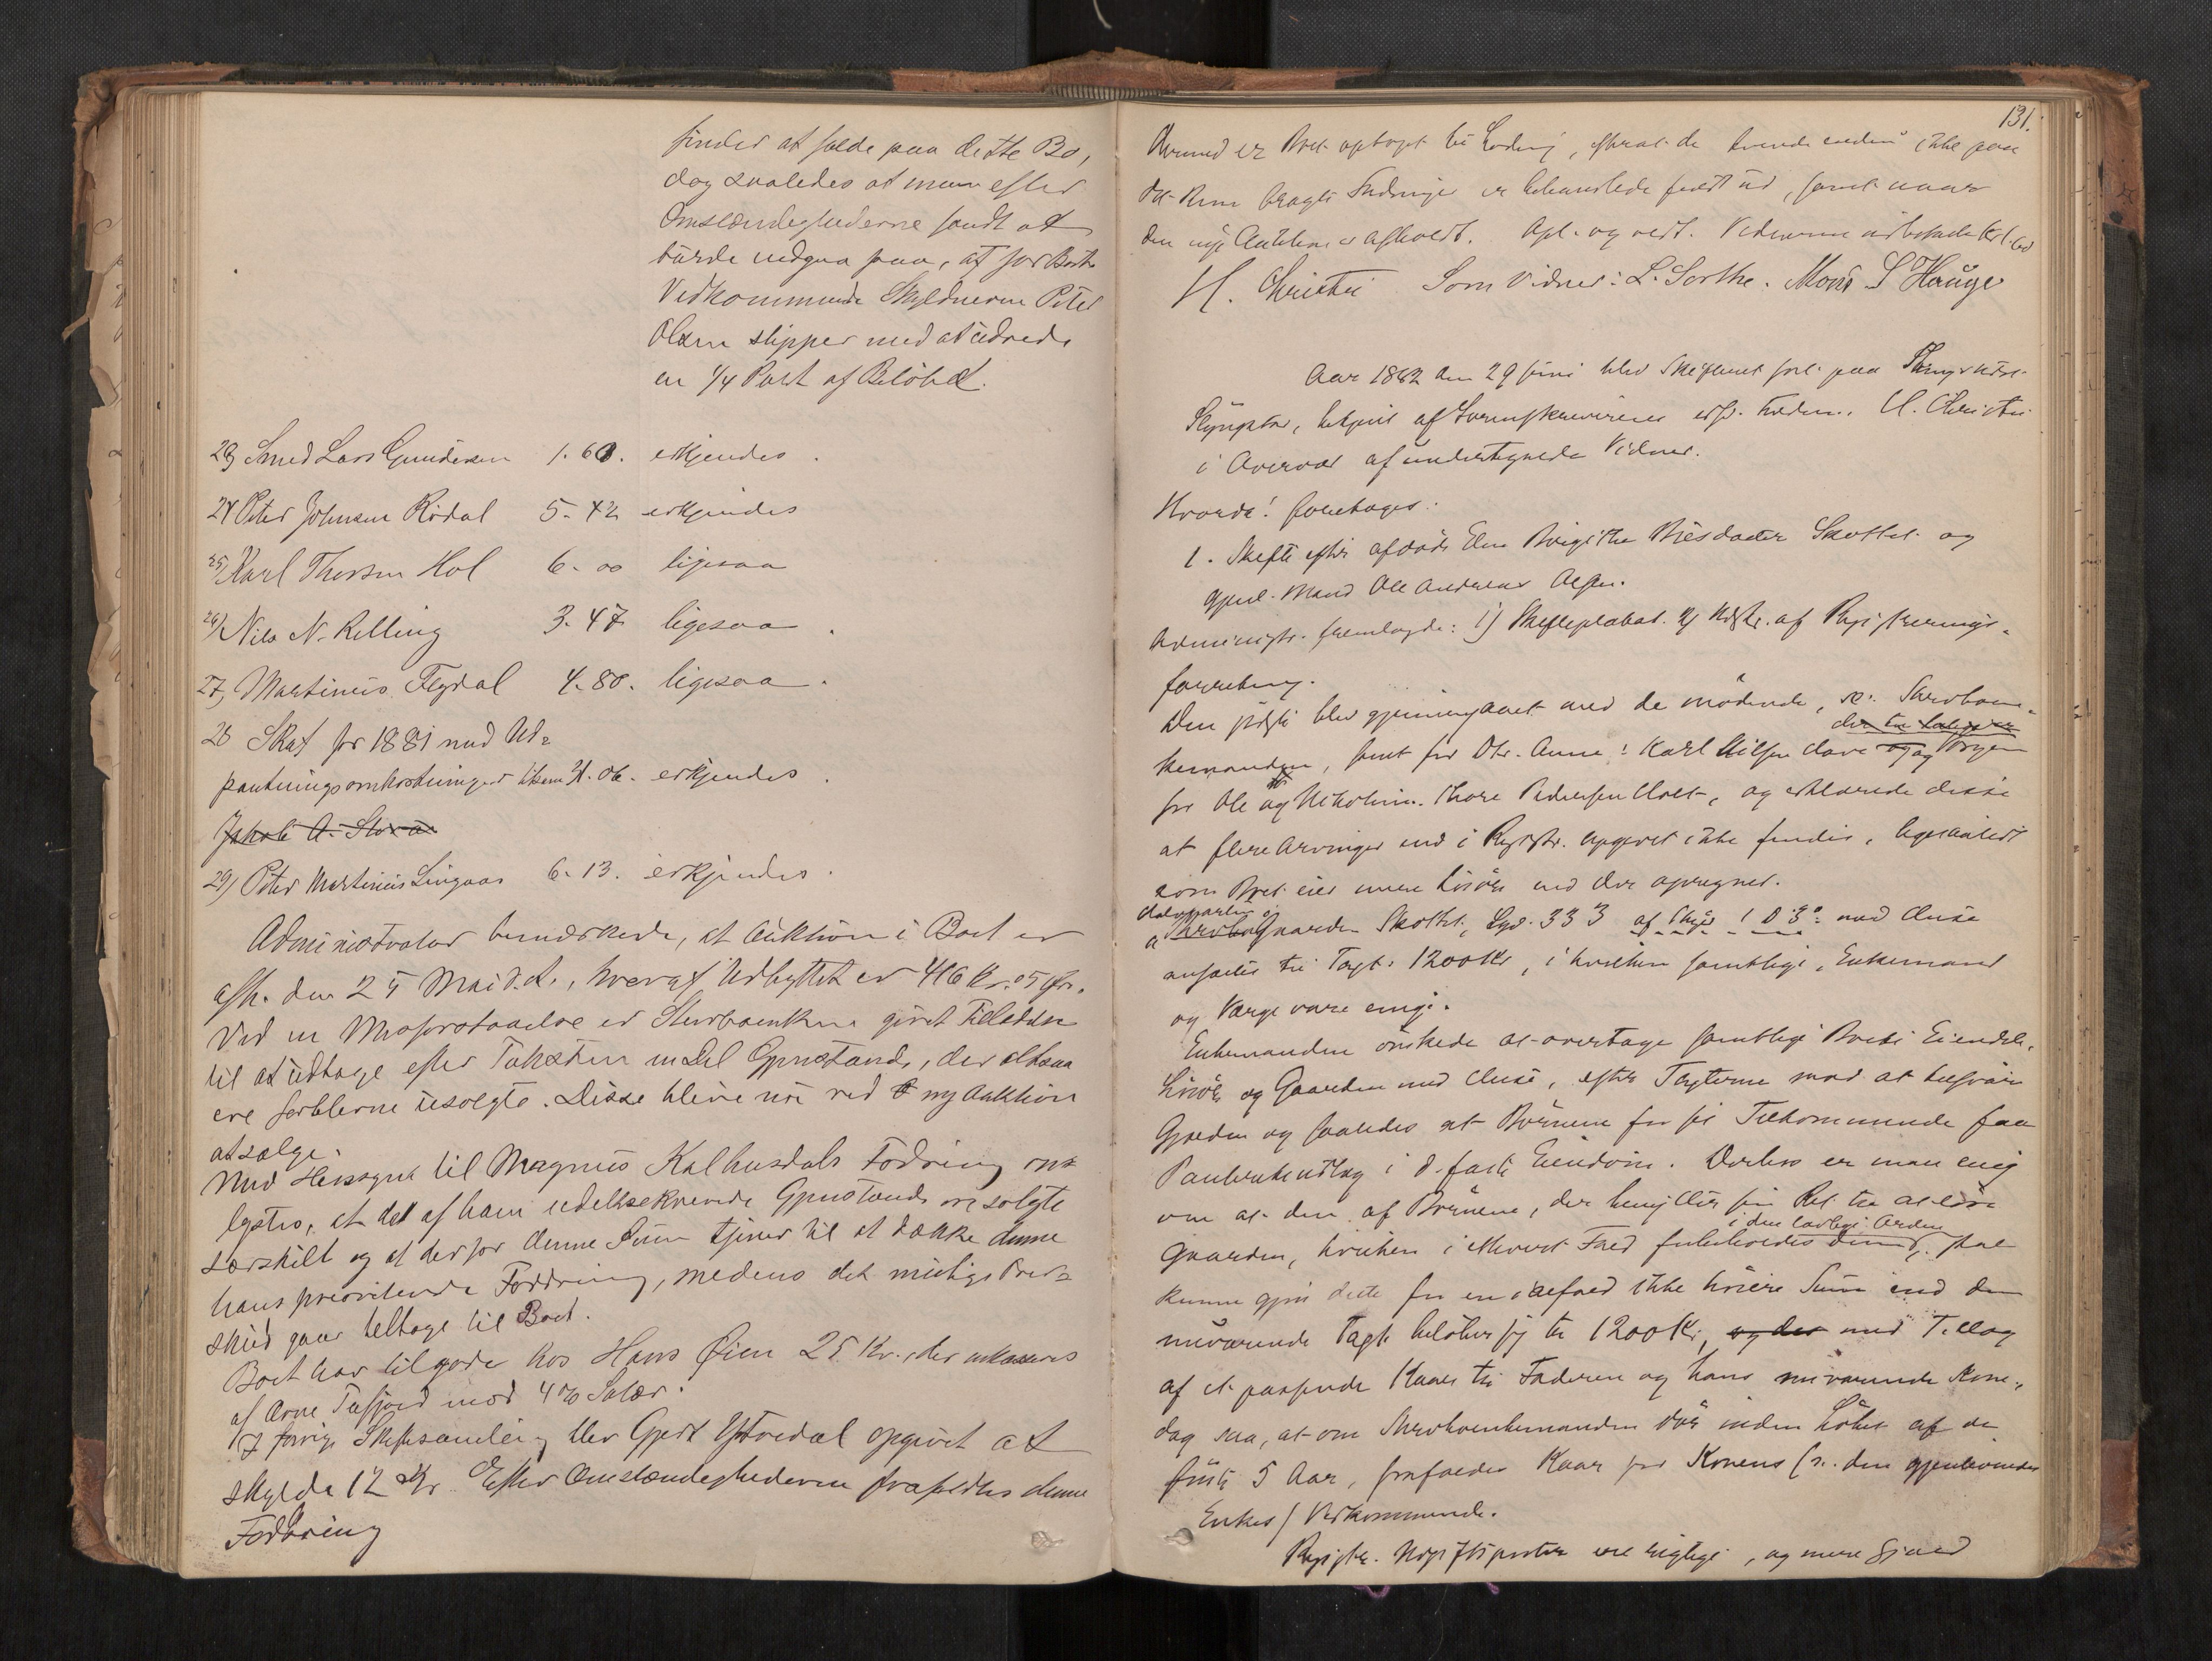 finder at falde paa dette Bo,
dog saaledes at man efter
Omstændighederne fandt at
burde indgaa paa, at for Boets
Vedkommende Skyldneren Peter
Olsen slipper med at udrede
en 1/4 Part af Beløbet.
23) Smed Lars Gundersen 1.60. erkjendes.
24 Peter Johnsen Rødal 5-42 erkjendes
25) Karl Thorsen Hol 6-00 ligesaa
26) Nils N. Relling 3.47 ligesaa.
27, Martinus Flydal 4.80. ligesaa.
28 Skat for 1881 med Ud-
pantningsomkostninger tilsam. 21.06. erkjendes.
Jakob A. Stora
29) Peter Martinus Lingaas 6.13. erkjendes.
Administrator bemærkede, at Auktion i Boet er
afh. den 25 Mai d.A., hvoraf Udbyttet er 416 Kr. 05 Øre.
Ved en Misforstaaelse er Stervboenken givet Tilladelse
til at udtage efter Taksten en Del Gjenstande, der altsaa
ere forblevne usolgte. Disse blive nu ved ny Auktion
at sælge.
Med Hensyn til Magnus Kalhusdals Fodring op-
lystes, at de af ham udelukkende Gjenstande ere solgte
særskilt og at derfor denne Sum tjener til at dække denne
hans prioriterede Fordring, medens det mulige Over-
skud gaar tilbage til Boet.
Boet har tilgode hos Hans Øien 25 Kr., der inkasseres
af Arne Tafjord mod 4% Salær.
I forrige Skiftesamling blev Gjert Ytredal opgivet at
skylde 12 Kr. Efter Omstændighederne frafaldes denne
Fodring
131.
Hermed er Boet optaget til Lodning, efterat de endnu ikke paa
det Rene bragte Fodringer er behandlede fuldt ud, samt naar
den nye Auktion er afholdt. Opl. og vedt. Vidnerne udbetalte
H. Christie Som Vidner: L. Sorthe. Mons S Hauge
Aar 1882 den 29 Juni blev Skifteret sat paa
betjent af Sorenskriveriets H. Christie
i Overvær af undertegnede Vidner.
Hvorda! foretoges:
1. Skifte efter afdøde Elen Birgithe Nilsdatter Skottet og
gjenl. Mand Ole Andreas Olsen.
Administr. fremlagde: 1) Skifteplakat. 2) Udskr. af Registrerings-
forretning.
Den sidste blev gjennemgaaet med de mødende, : Stervboen-
der tre
kemanden, samt for Dtr. Anne: Karl Nilsen og Vergen
for Ole og Nikoline. Thore Pedersen Holt, og erklærede disse
at flere Arvinger end i Registr. opgivet ikke findes, ligesaalidt
som Boet eier mere Løsøre end der opregnet.
Gaarden Skottet, Lno. 333 af Skyld 1 D 3 med Huse
ansættes til Taxt. 1200 Kr, i hvilken samtlige, Enkemand
og Verge vare enige.
Enkemanden ønskede at overtage samtlige Boets Eiendele,
Løsøre og Gaarden med Huse, efter Taxterne mod at tilsvare
Gjælden og saaledes at Børnene for sit Tilkommende faa
Panteudlæg i d. faste Eiendom. Derhos er man enig
om at den af Børnene, der benytter sin Ret til at løse
i den lovlige Orden
Gaarden, hvilken i ethvert Fald forbeholdes dem, skal
kunne gjøre dette for en ialfald ikke høiere Sum end den
nuværende Taxt beløber sig til 1200 Kr, og der med Tillæg
af et passende Kaar til Faderen og hans nuværende Kone,
dog saa, at om Stervboenkemanden dør inden Løbet af de
første 5 Aar, frafalder Kaar for Konens (: den gjenlevendes
Enkes) Vedkommende.
Registr. Udgiftsposter ere rigtige, og mere Gjæld